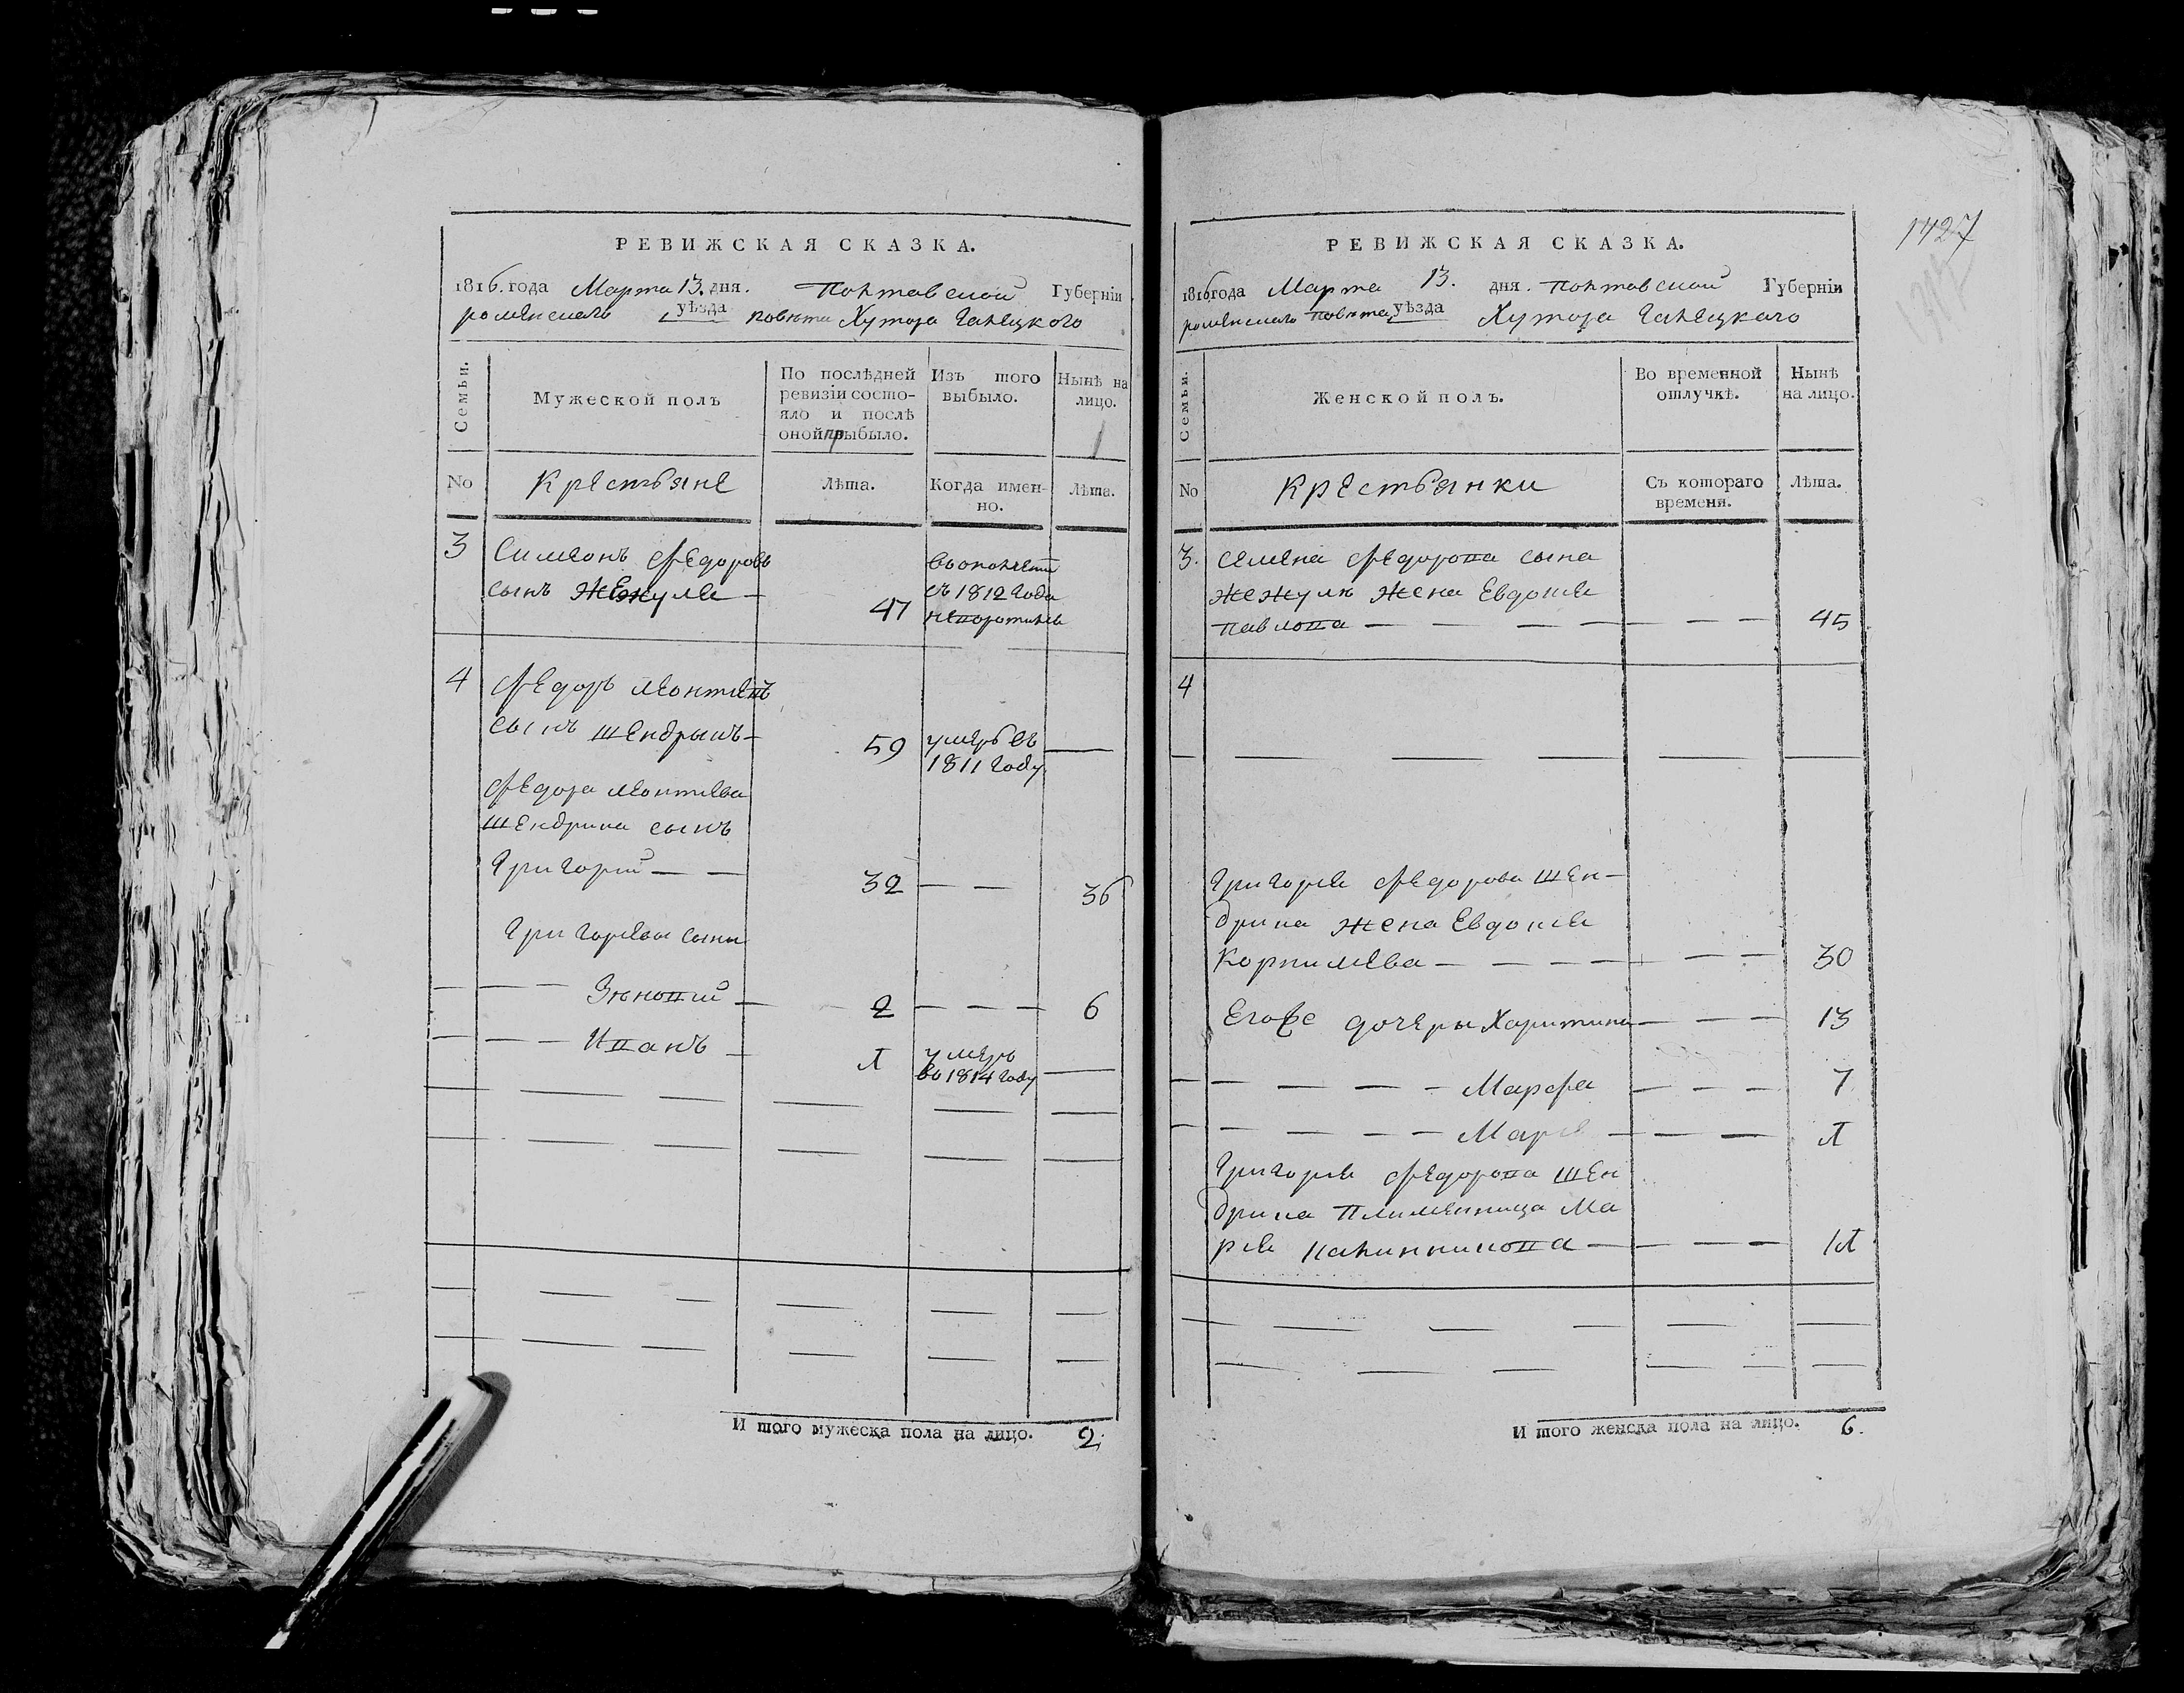 РЕВИЖСКАЯ СКАЗКА.
1816. года Марта 13. дня. Полтавской Губерніи
роменского уѣзда повѣта Хутора Галецкого
Семьи.
Мужеской полъ
По послѣдней
ревизіи состо-
яло и послѣ
оной прибыло.
Изъ того
выбыло.
Нынѣ на
лицо.
No
Крестьяне
Лѣта.
Когда имен-
но.
Лѣта.
3
Симеонъ Федоровъ
сынъ Жежуля —
47
въ ополчении
съ 1812 года
4
Федоръ Леонтиевъ
сынъ Шендрынъ —
59
умеръ въ
1811 году
Федора Леонтиева
Шендрина сынъ
Григорий — —
32
36
Григориевы сыны
Зѣновий
2
6
Иванъ
1
умеръ
во 1814 году
И того мужеска пола на лицо. 2.
1427
РЕВИЖСКАЯ СКАЗКА.
1816 года Марта 13. дня. Полтавской Губерніи
роменского повѣта уѣзда Хутора Галецкаго
Семьи.
Женской полъ.
Во временной
отлучкѣ.
Нынѣ
на лицо.
No
Крестьянки
Съ котораго
времени.
Лѣта.
3.
Семена Федорова сына
Жежулѣ жена Евдокия
Павлова
45
4
Григория Федорова Шен-
дрина жена Евдокия
Корнилиева
30
Егоже дочеры Харитина
13
Марфа
7
Мария
1
Григория Федорова Шен
дрина племенница Ма
рия
11
И того женска пола на лицо. 6.